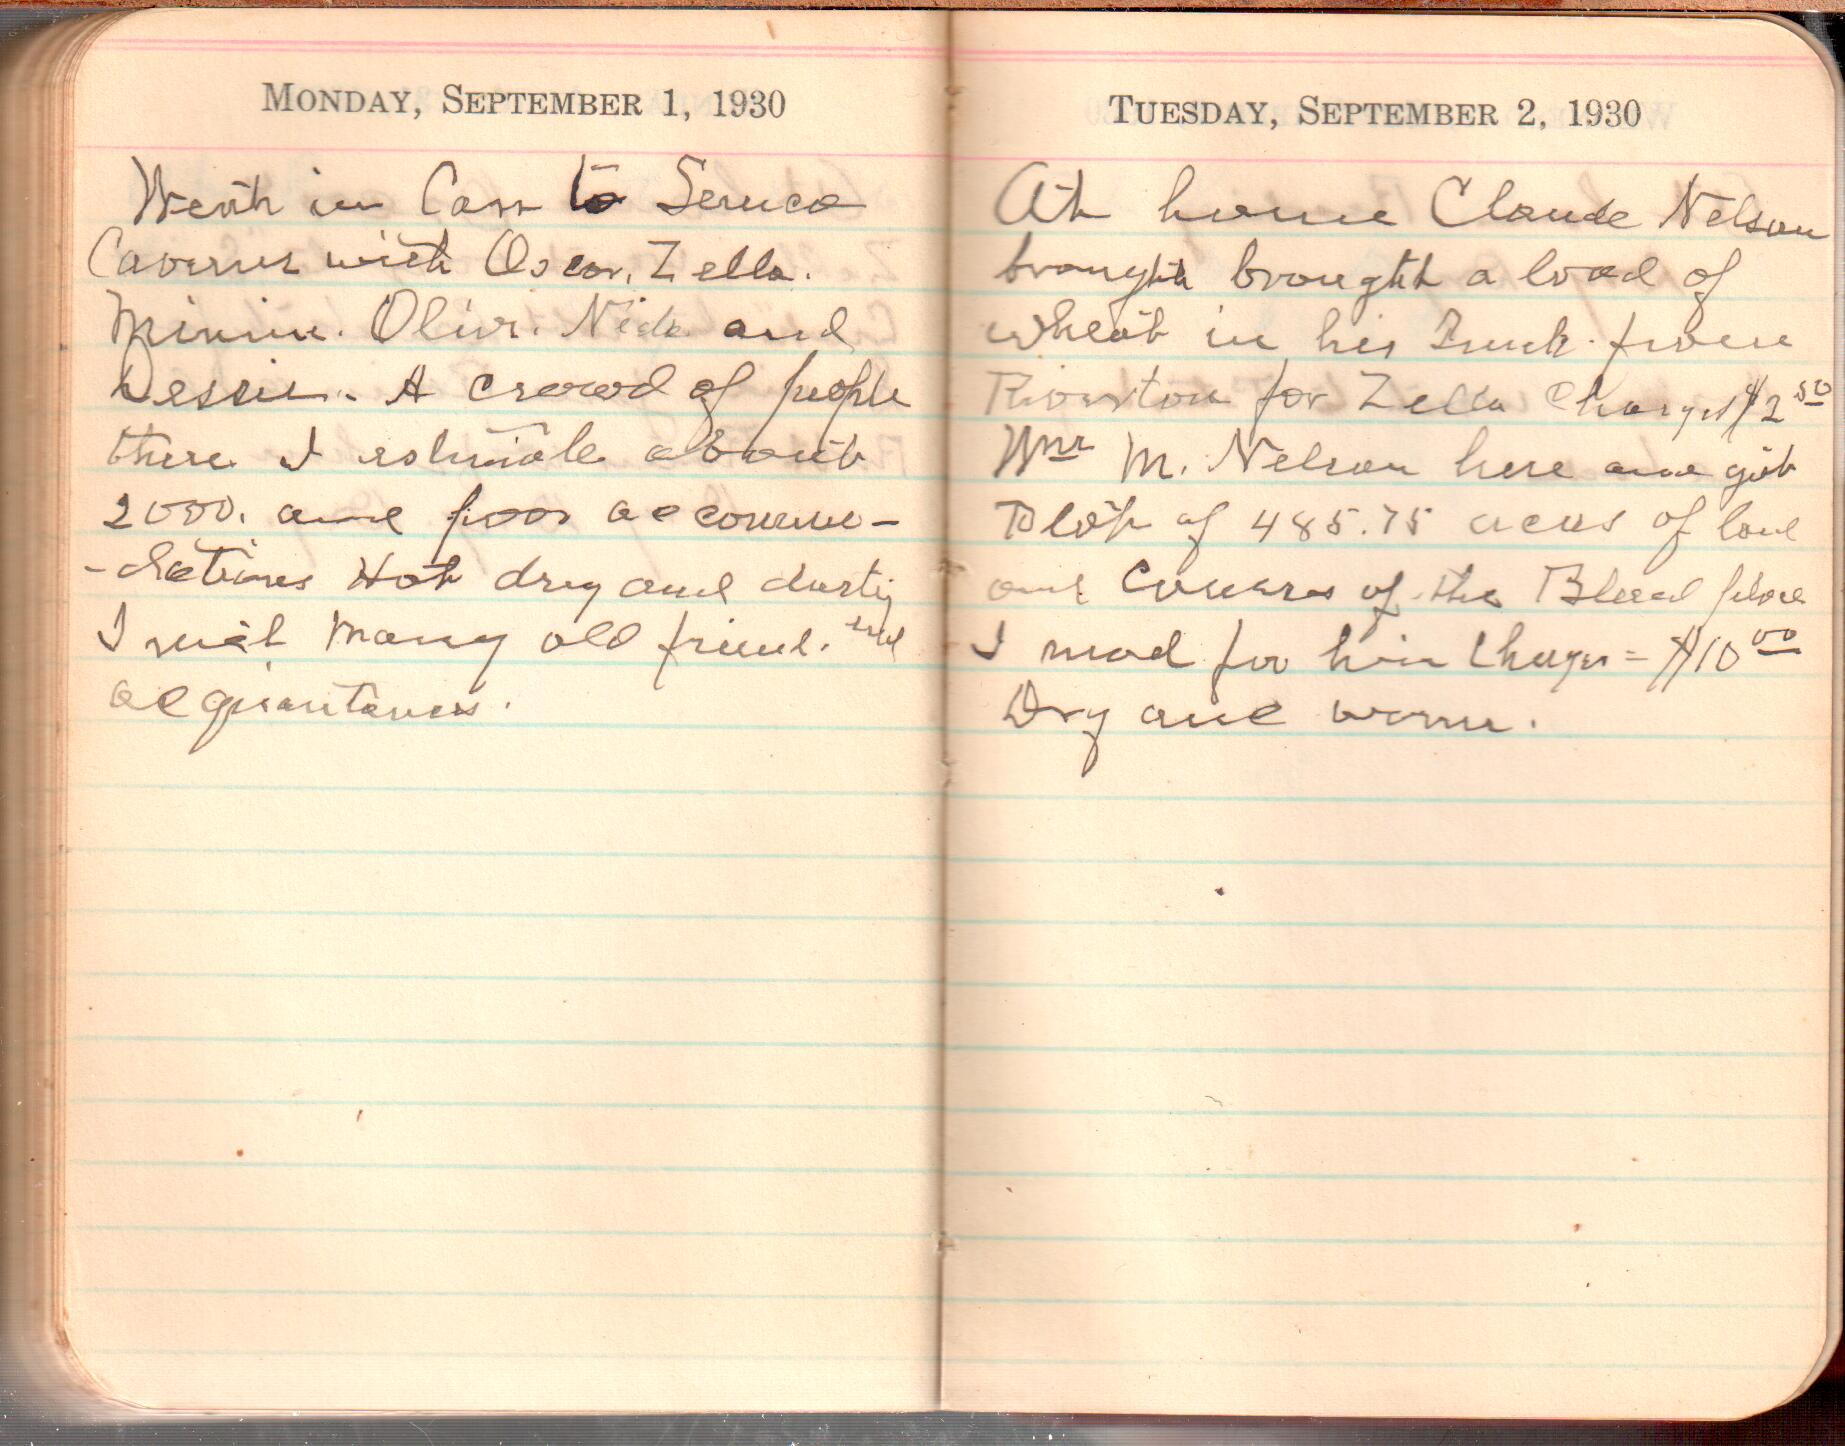 MONDAY, SEPTEMBER 1, 1930
Went in Carr to Seneca
Caverns with Oscar, Zella.
Minnie. Oliver. Nick and
Dessie. A crowd of people
there I estimate about
2000. and poor accommo-
-dations Hot dry and dusty
I met many old friend. and
acquantances.
TUESDAY, SEPTEMBER 2, 1930
At home Claude Nelson
brought brought a load of
wheat in his Truck from
Riverton for Zella Charges $2 50
Wm M. Nelson here and got
Plot of 485.75 acres of land
and Courses of the Blood place
I mad for him Charges = $10 00
Dry and warm.